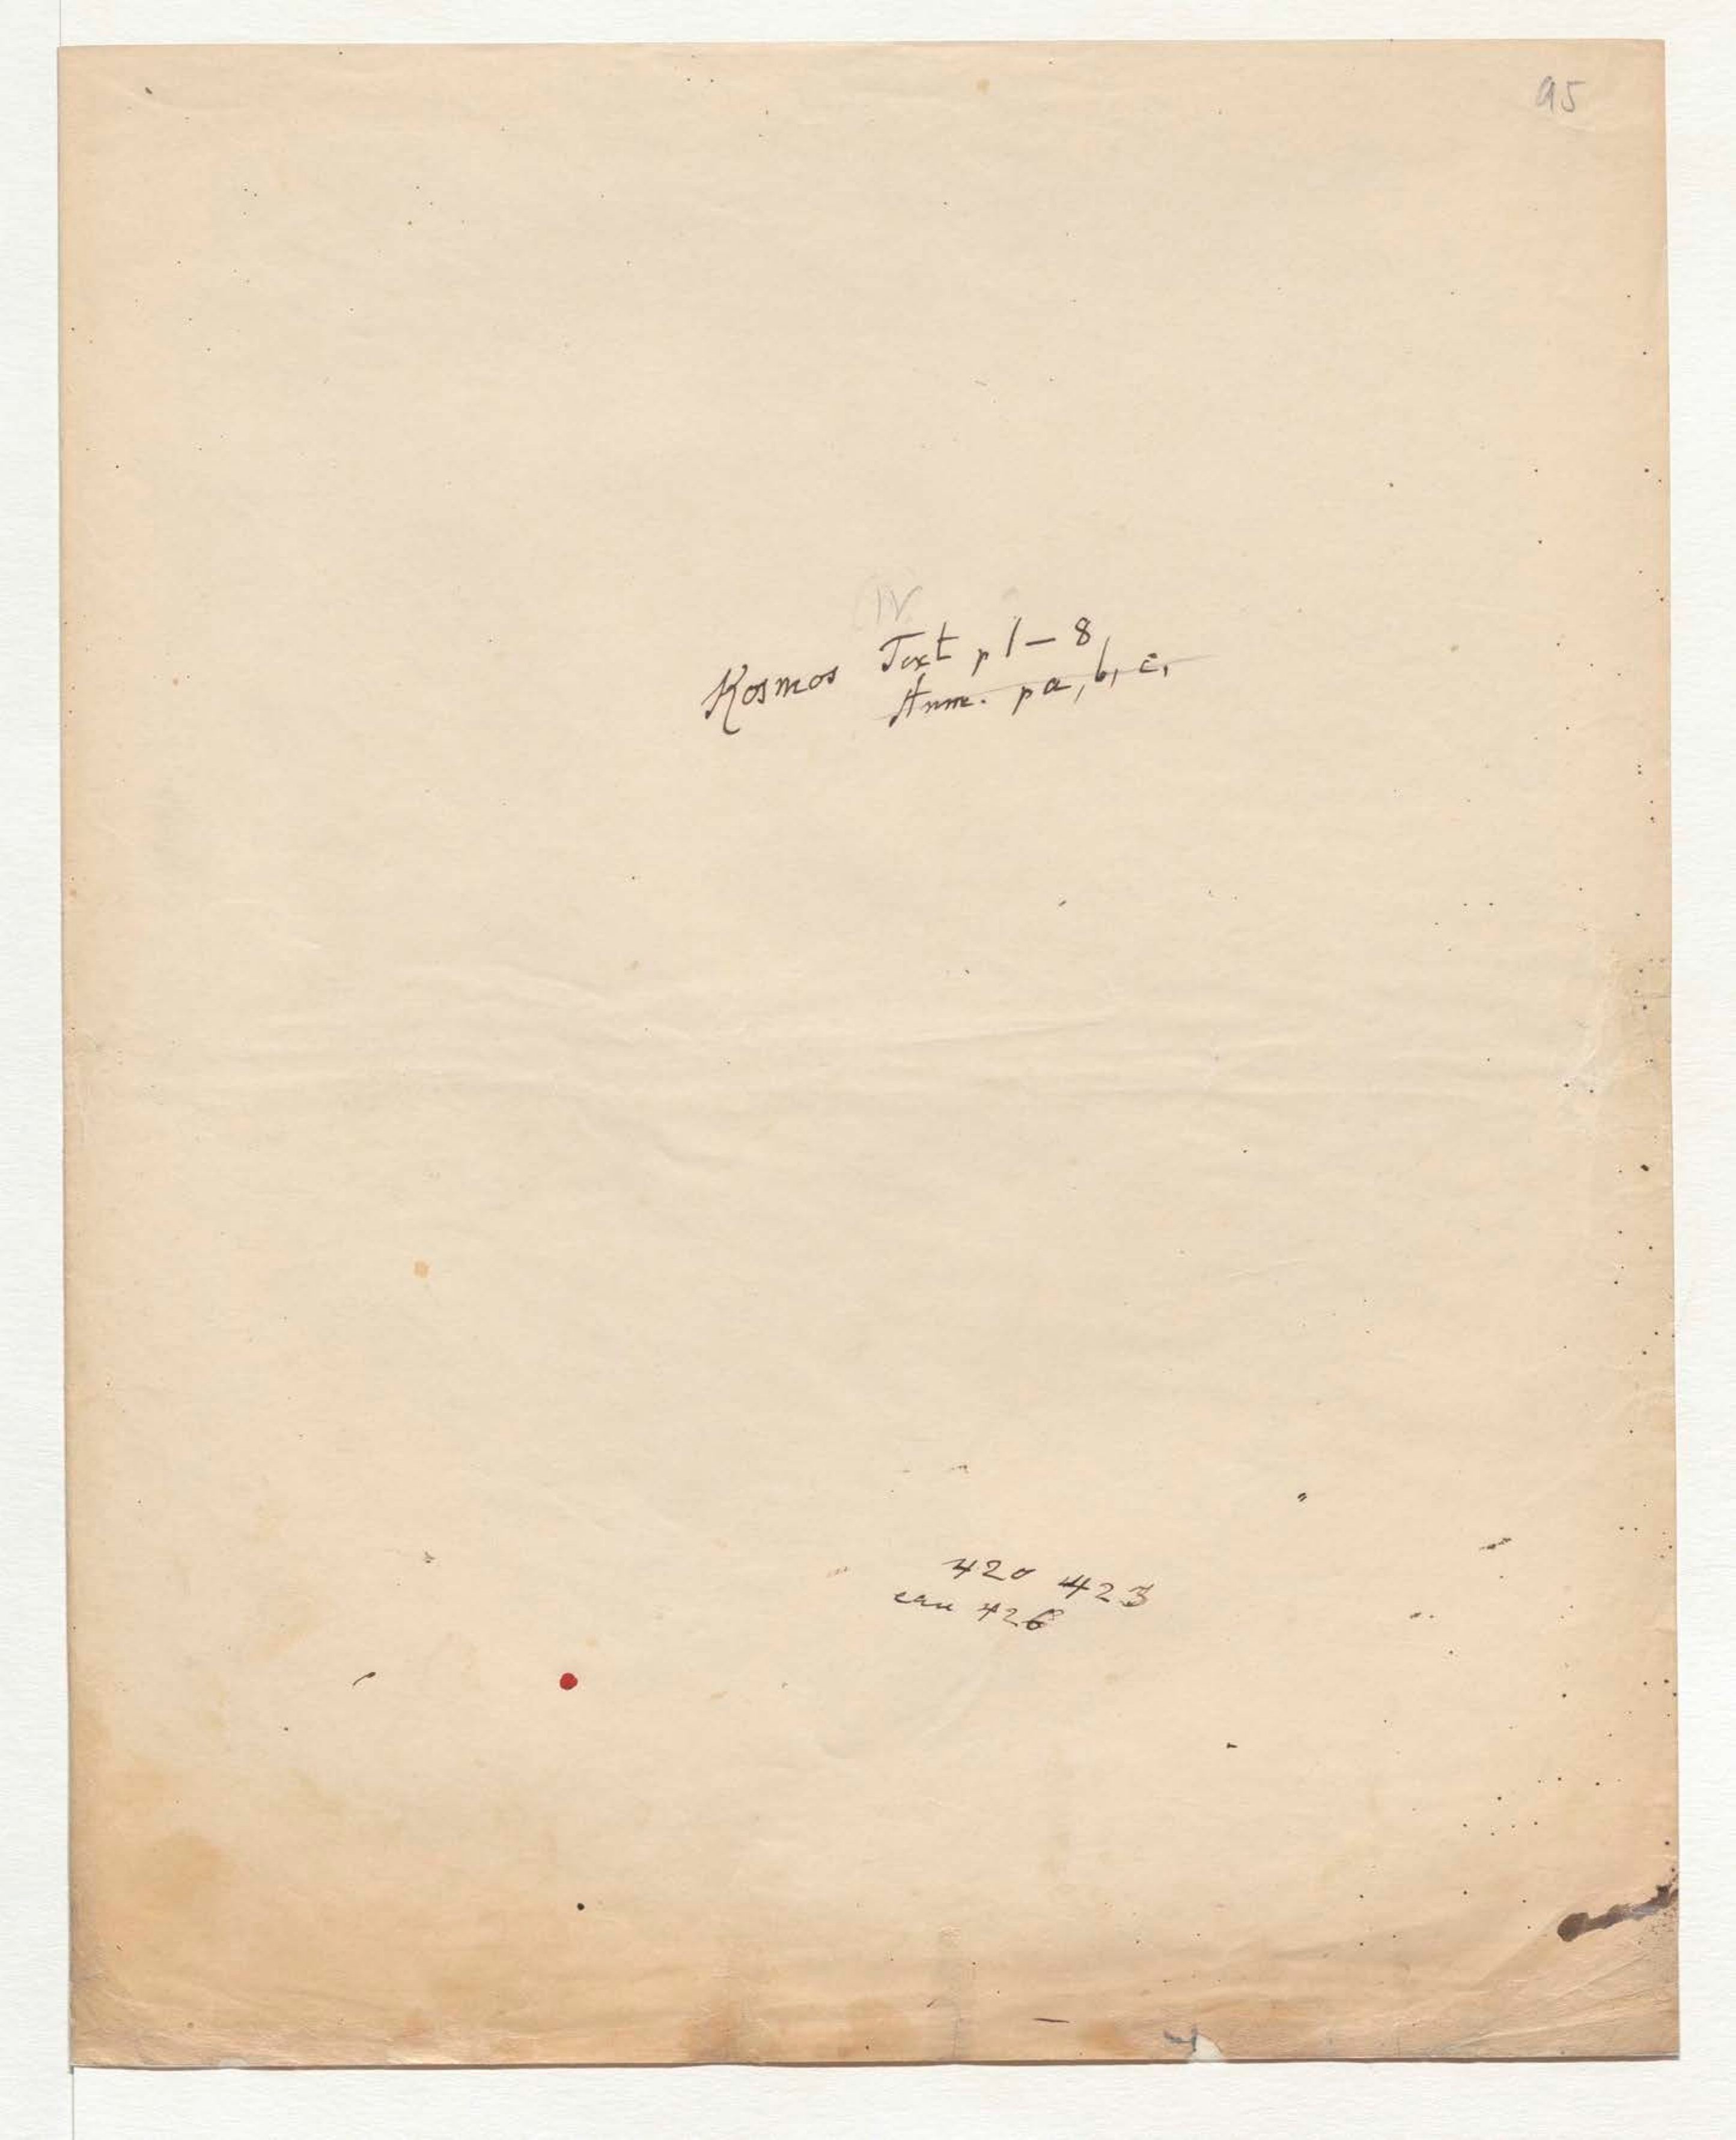 95
IV.
Kosmos Text p 1–8
Anm. p a, b, c,
420 423
eau 426